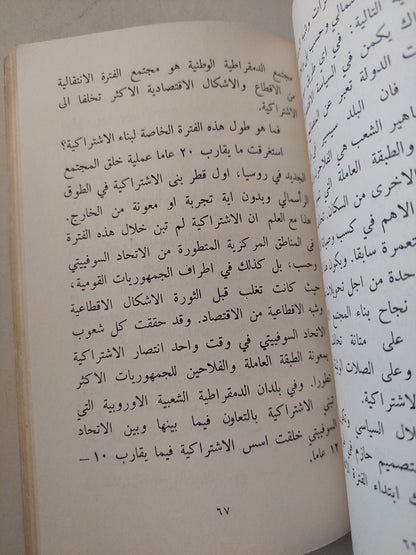 مجتمع الدمقراطية الوطنية هو مجتمع الفترة الانتقالية
من الاقطاع والاشكال الاقتصادية الاكثر تخلفا الى
الاشتراكية.
فما هو طول هذه الفترة الخاصة لبناء الاشتراكية؟
استغرقت ما يقارب ٢٠ عاما عملية خلق المجتمع
الجديد في روسيا، اول قطر بنى الاشتراكية في الطوق
الرأسمالي وبدون اية تجربة او معونة من الخارج.
هذا مع العلم ان الاشتراكية لم تبن خلال هذه الفترة
في المناطق المركزية المتطورة من الاتحاد السوفييتي
وحسب، بل كذلك في اطراف الجمهوريات القومية،
حيث كانت تغلب قبل الثورة الاشكال الاقطاعية
وشبه الاقطاعية من الاقتصاد. وقد حققت كل شعوب
الاتحاد السوفييتي في وقت واحد انتصار الاشتراكية
بمعونة الطبقة العاملة والفلاحين للجمهوريات الاكثر
تطورا. وفي بلدان الدمقراطية الشعبية الاوروبية التي
تبني الاشتراكية بالتعاون فيما بينها وبين الاتحاد
السوفييتي خلقت اسس الاشتراكية فيما يقارب ١٠ –
١٢ عاما.
٦٧
التالية:
يكمن في السياسة
الدولة تعبر عن
فان البلد سيسير
الشعب هي الفلاحين
والطبقة العاملة
الاخرى من السكان
الاهم في كسب
سابقا. ويكون
من اجل تحريات
نجاح بناء المجتمع
على متانة
وعلى الصلات
الاشتراكية.
السياسي
حازم في
ابتداء الفترة
٦٦